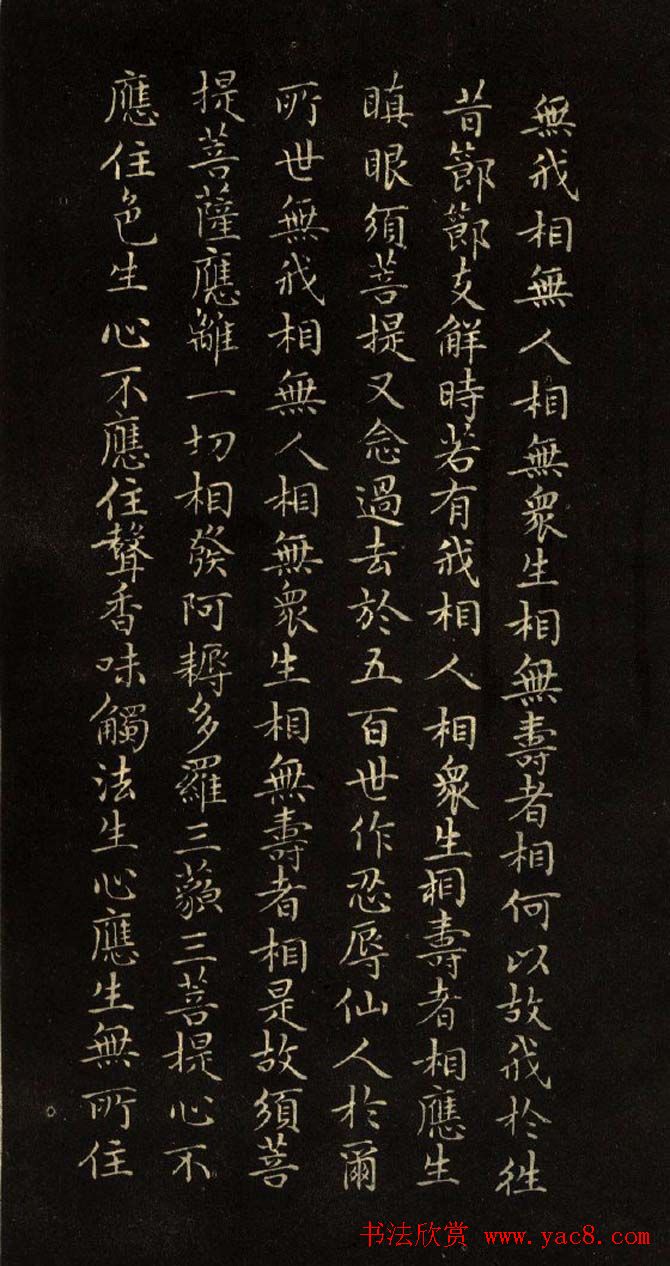 無我相無人相無衆生相無壽者相何以故我於往
昔節節支解時若有我相人相衆生相壽者相應生
瞋眼須菩提又念過去於五百世作忍辱仙人於爾
所世無我相無人相無衆生相無壽者相是故須菩
提菩薩應離一切相發阿耨多羅三藐三菩提心不
應住色生心不應住聲香味觸法生心應生無所住
书法欣赏 www.yac8.com